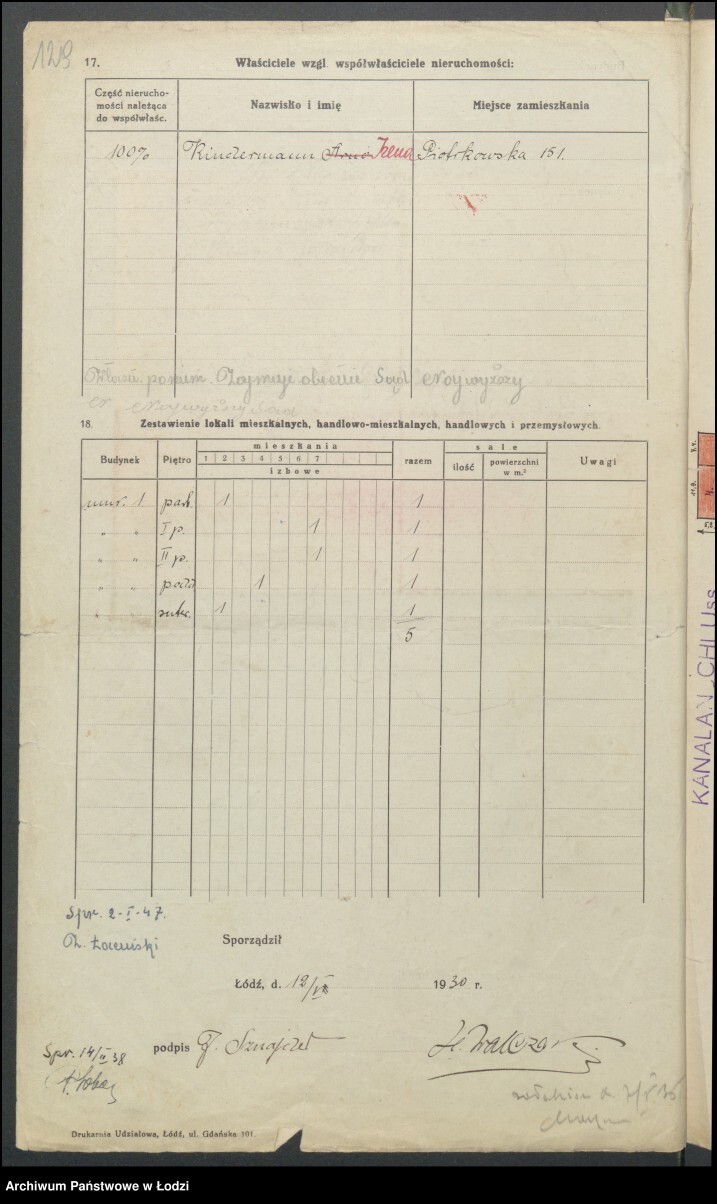 129
17. Właściciele wzgl. współwłaściciele nieruchomości:
Część nierucho-
mości należąca
do współwłaśc.
Nazwisko i imię
Miejsce zamieszkania
100% Kindermann Irena Piotrkowska 151.
Zajmuje obecnie Sąd Najwyższy
Najwyższy Sąd
18. Zestawienie lokali mieszkalnych, handlowo-mieszkalnych, handlowych i przemysłowych.
Budynek Piętro mieszkania razem sale Uwagi
1 2 3 4 5 6 7
izbowe
ilość powierzchni
w m.²
mur. 1 part. 1 1
" " I p. 1 1
" " II p. 1 1
" " podd 1 1
" " suter. 1 1
5
Spr. 2-I-47.
Sporządził
Łódź, d. 12/ 1930 r.
Spr. 14/II 38
podpis
Drukarnia Udziałowa, Łódź, ul. Gdańska 101.
KANALAN
Archiwum Państwowe w Łodzi